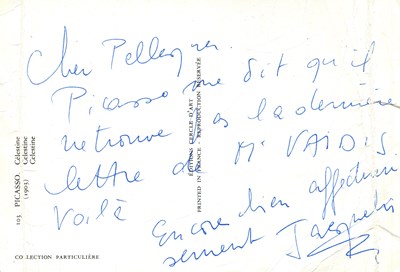 Cher Pellequer
Picasso me dit qu'il
retrouve pas la dernière
lettre de Mr VAIDIS
Voilà
Encore bien affectueu
sement Jacqueline
105 PICASSO. Célestine
(1903) Celestina
Celestine
ÉDITIONS CERCLE D'ART
PRINTED IN FRANCE - REPRODUCTION RÉSERVÉE
COLLECTION PARTICULIÈRE